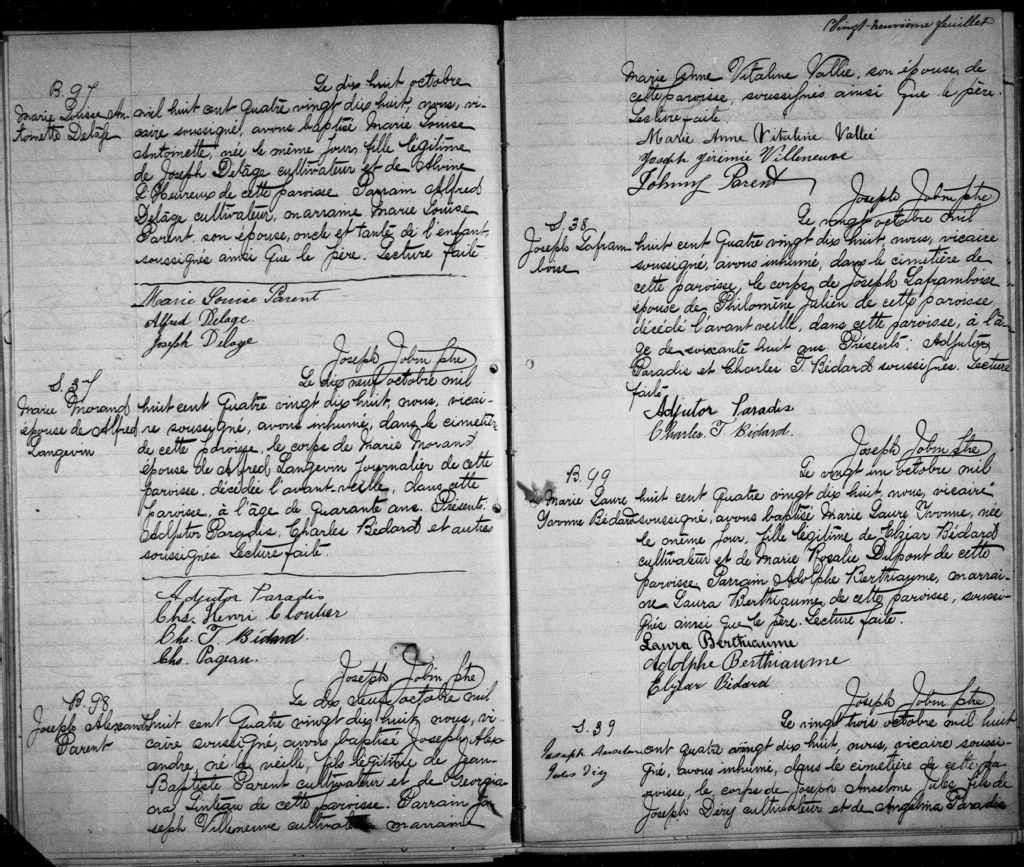 B. 97
Marie Louise An
toinette Delâge
Le dix huit octobre
mil huit cent quatre vingt dix huit, nous, vi-
caire soussigné, avons baptisé Marie Louise
Antoinette, née le même jour, fille légitime
de Joseph Delâge cultivateur et de Alvine
L'Heureux de cette paroisse. Parrain Alfred
Delâge cultivateur, marraine Marie Louise
Parent, son épouse, oncle et tante de l'enfant,
soussignés ainsi que le père. Lecture faite.
Marie Louise Parent
Alfred Delage
Joseph Delage
Joseph Jobin Ptre
S. 37
Marie Morand
épouse de Alfred
Langevin
Le dix neuf octobre mil
huit cent quatre vingt dix huit, nous, vicai-
re soussigné, avons inhumé, dans le cimetière
de cette paroisse, le corps de Marie Morand
épouse de Alfred Langevin journalier de cette
paroisse, décédée l'avant-veille, dans cette
paroisse, à l'âge de quarante ans. Présents:
Adjutor Paradis, Charles Bédard et autres
soussignés. Lecture faite.
Adjutor Paradis
Chs. Henri Cloutier
Chs. T. Bédard.
Chs. Pageau.
Joseph Jobin Ptre
B. 98
Joseph Alexandre
Parent
Le dix neuf octobre mil
huit cent quatre vingt dix huit, nous, vi
caire soussigné, avons baptisé Joseph Alex
andre, né la veille, fils légitime de Jean-
Baptiste Parent cultivateur et de Georgia-
na Linteau de cette paroisse. Parrain Jo
seph Villeneuve cultivateur marraine
Vingt-neuvième feuillet
Marie Anne Vitaline Vallée, son épouse, de
cette paroisse, soussignés ainsi que le père.
Lecture faite.
Marie Anne Vitaline Valleé
Joseph Jérémie Villeneuve
Johnny Parent
Joseph Jobin ptre
S. 38
Joseph Lafram
boise
Le vingt octobre mil
huit cent quatre vingt dix huit, nous, vicaire
soussigné, avons inhumé, dans le cimetière de
cette paroisse, le corps de Joseph Laframboise
époux de Philomène Julien de cette paroisse,
décédé l'avant veille, dans cette paroisse, à l'â-
ge de soixante huit ans. Présents: Adjutor
Paradis et Charles T. Bédard soussignés. Lecture
faite.
Adjutor Paradis
Charles. T. Bédard.
Joseph Jobin Ptre
B. 99
Marie Laure
Yvonne Bédard
Le vingt un octobre mil
huit cent quatre vingt dix huit, nous, vicaire
soussigné, avons baptisé Marie Laure Yvonne, née
le même jour, fille légitime de Elzéar Bédard
cultivateur et de Marie Rosalie Dupont de cette
paroisse. Parrain Adolphe Berthiaume, marrai-
ne Laura Berthiaume, de cette paroisse, soussi-
gnés ainsi que le père. Lecture faite.
Laura Berthiaume
Adolphe Berthiaume
Elzéar Bédard
Joseph Jobin ptre
S. 39
Joseph Anselme
Jules Déry
Le vingt trois octobre mil huit
cent quatre vingt dix huit, nous, vicaire soussi-
gné, avons inhumé, dans le cimetière de cette pa-
roisse, le corps de Joseph Anselme Jules, fils de
Joseph Déry cultivateur et de Angelina Paradis